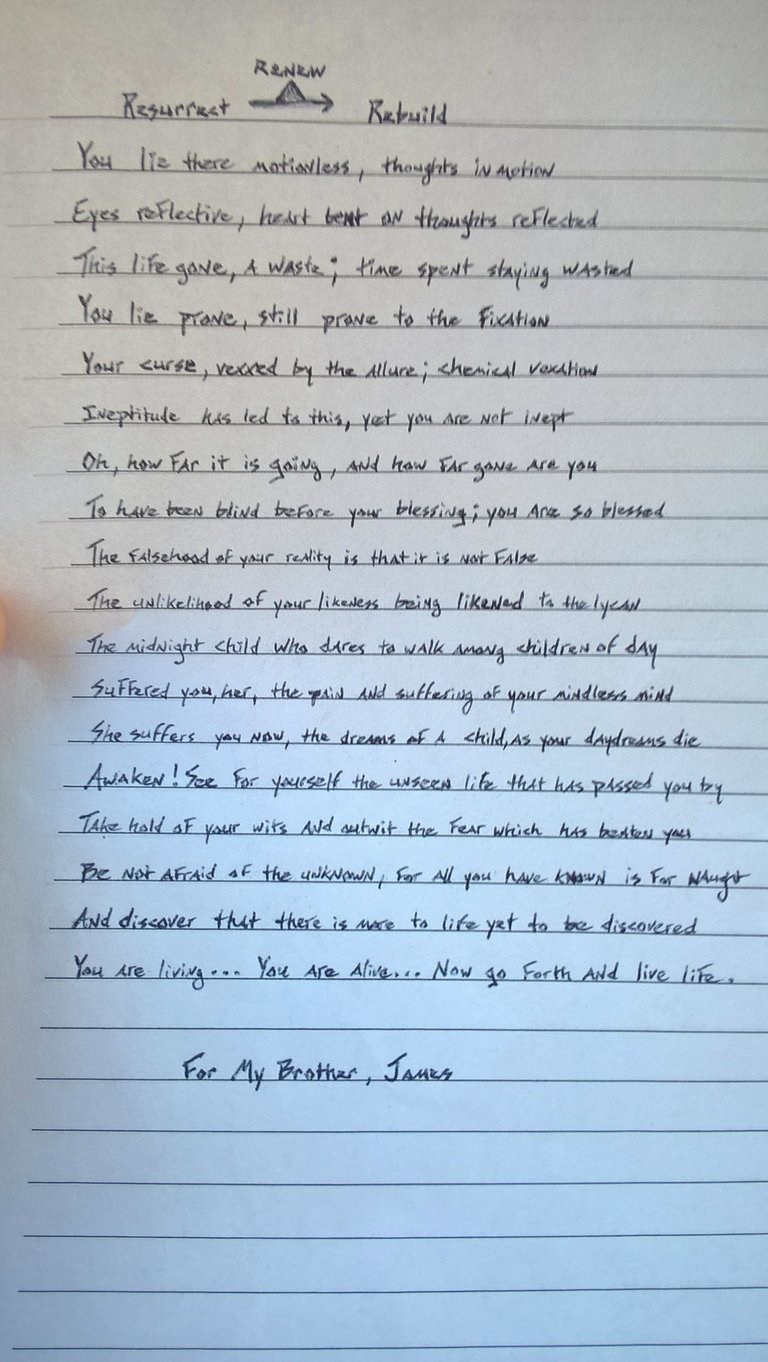 RENEW
Resurrect Rebuild
You lie there motionless, thoughts in motion
Eyes reflective, heart bent on thoughts reflected
This life gone, a waste; time spent staying wasted
You lie prone, still prone to the fixation
Your curse, vexxed by the allure; chemical vexation
Ineptitude has led to this, yet you are not inept
Oh, how far it is going, and how far gone are you
To have been blind before your blessing; you are so blessed
The falsehood of your reality is that it is not false
The unlikelihood of your likeness being likened to the lycan
The midnight child who dares to walk among children of day
Suffered you, her, the pain and suffering of your mindless mind
She suffers you now, the dreams of a child, as your daydreams die
Awaken! See for yourself the unseen life that has passed you by
Take hold of your wits and outwit the fear which has beaten you
Be not afraid of the unknown, for all you have known is for naught
And discover that there is more to life yet to be discovered
You are living... You are alive... Now go forth and live life.
For My Brother, James